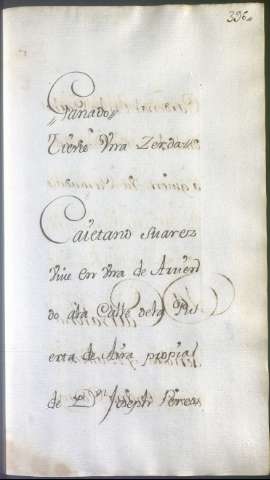 396.
Ganado
Tiene Vna Zerda
Caietano Suarez
vive en vna de Arrien
do a la Calle de la Pu
erta de Aira propia
de Dn. Joseph Perez